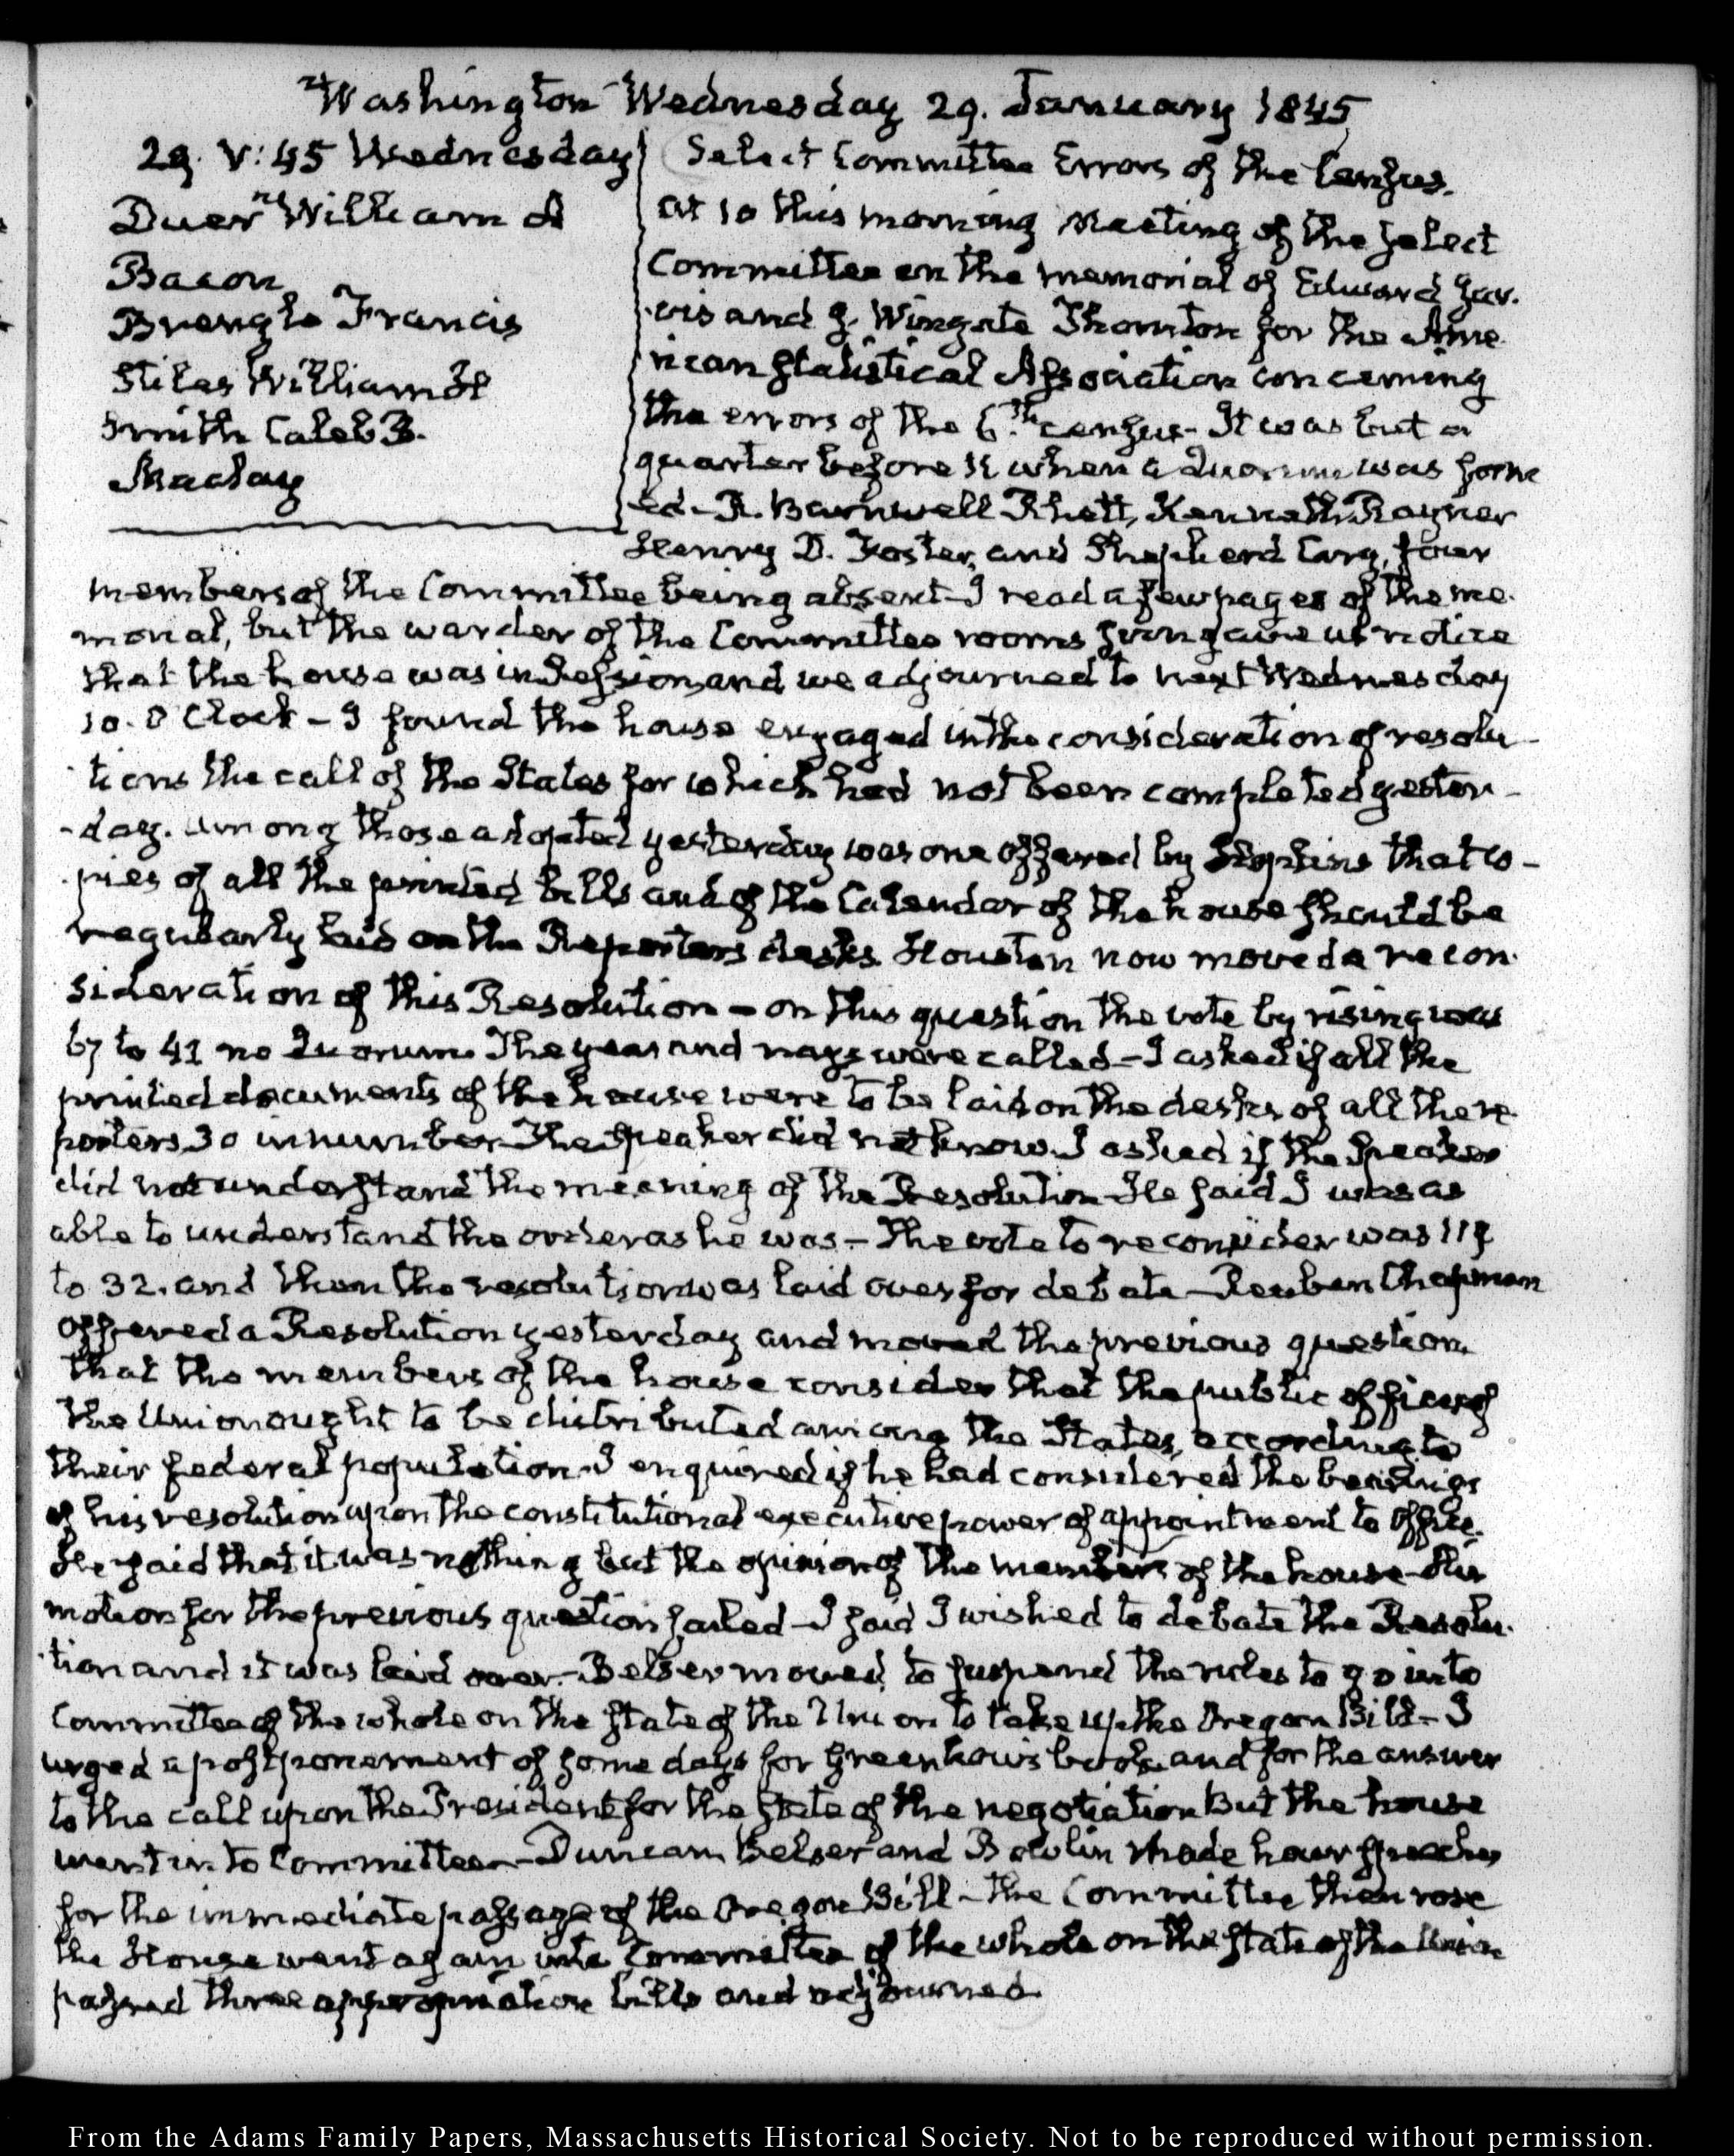 Washington Wednesday 29. January 1845
29. V:45 Wednesday
Duer William A
Bacon
Brengle Francis
Stiles William H
Smith Caleb B.
Maclay
Select Committee Errors of the Census.
at 10 this morning Meeting of the Select
Committee on the memorial of Edward Jar-
vis and J. Wingate Thornton for the Ame-
rican Statistical Association concerning
the errors of the 6th census. It was but a
quarter before 11 when a Quorum was form
ed. R. Barnwell Rhett, Kenneth Rayner
Henry D. Foster, and Shepherd Cary, four
members of the Committee being absent I read a few pages of the me-
morial, but the warder of the Committee rooms gave us notice
that the house was in Session, and we adjourned to next Wednesday
10. O Clock – I found the house engaged in the consideration of resolu-
tions the call of the States for which had not been completed yester-
day. Among those adopted yesterday was one offered by that co-
pies of all the printed bills and of the Calendar of the house should be
regularly laid on the Reporters desks. Houston now moved a recon-
sideration of this Resolution – on this question the vote by rising was
67 to 41 no Quorum. The yeas and nays were called – I asked if all the
printed documents of the house were to be laid on the desks of all the re-
porters 30 in number. The Speaker did not know. I asked if the Speaker
did not understand the meaning of the Resolution He said I was as
able to understand the order as he was – The vote to reconsider was 118
to 32. and then the resolution was laid over for debate – Reuben Chapman
offered a Resolution yesterday and moved the previous question
that the members of the house consider that the public offices of
the Union ought to be distributed among the States, according to
their federal population. I enquired if he had considered the bearings
of his resolution upon the constitutional executive power of appointment to office.
He said that it was nothing but the opinion of the members of the house – His
motion for the previous question failed – I said I wished to debate the Resolu-
tion and it was laid over – Belser moved to suspend the rules to go into
Committee of the whole on the state of the Union to take up the Oregon Bill – I
urged a postponement of some days for Greenhow's book and for the answer
to the call upon the President for the state of the negotiation But the house
went into Committee – Duncan Belser and Bowlin made hour speeches
for the immediate passage of the Oregon Bill – the Committee then rose
the House went again into Committee of the whole on the state of the Union
passed three appropriation bills and adjourned